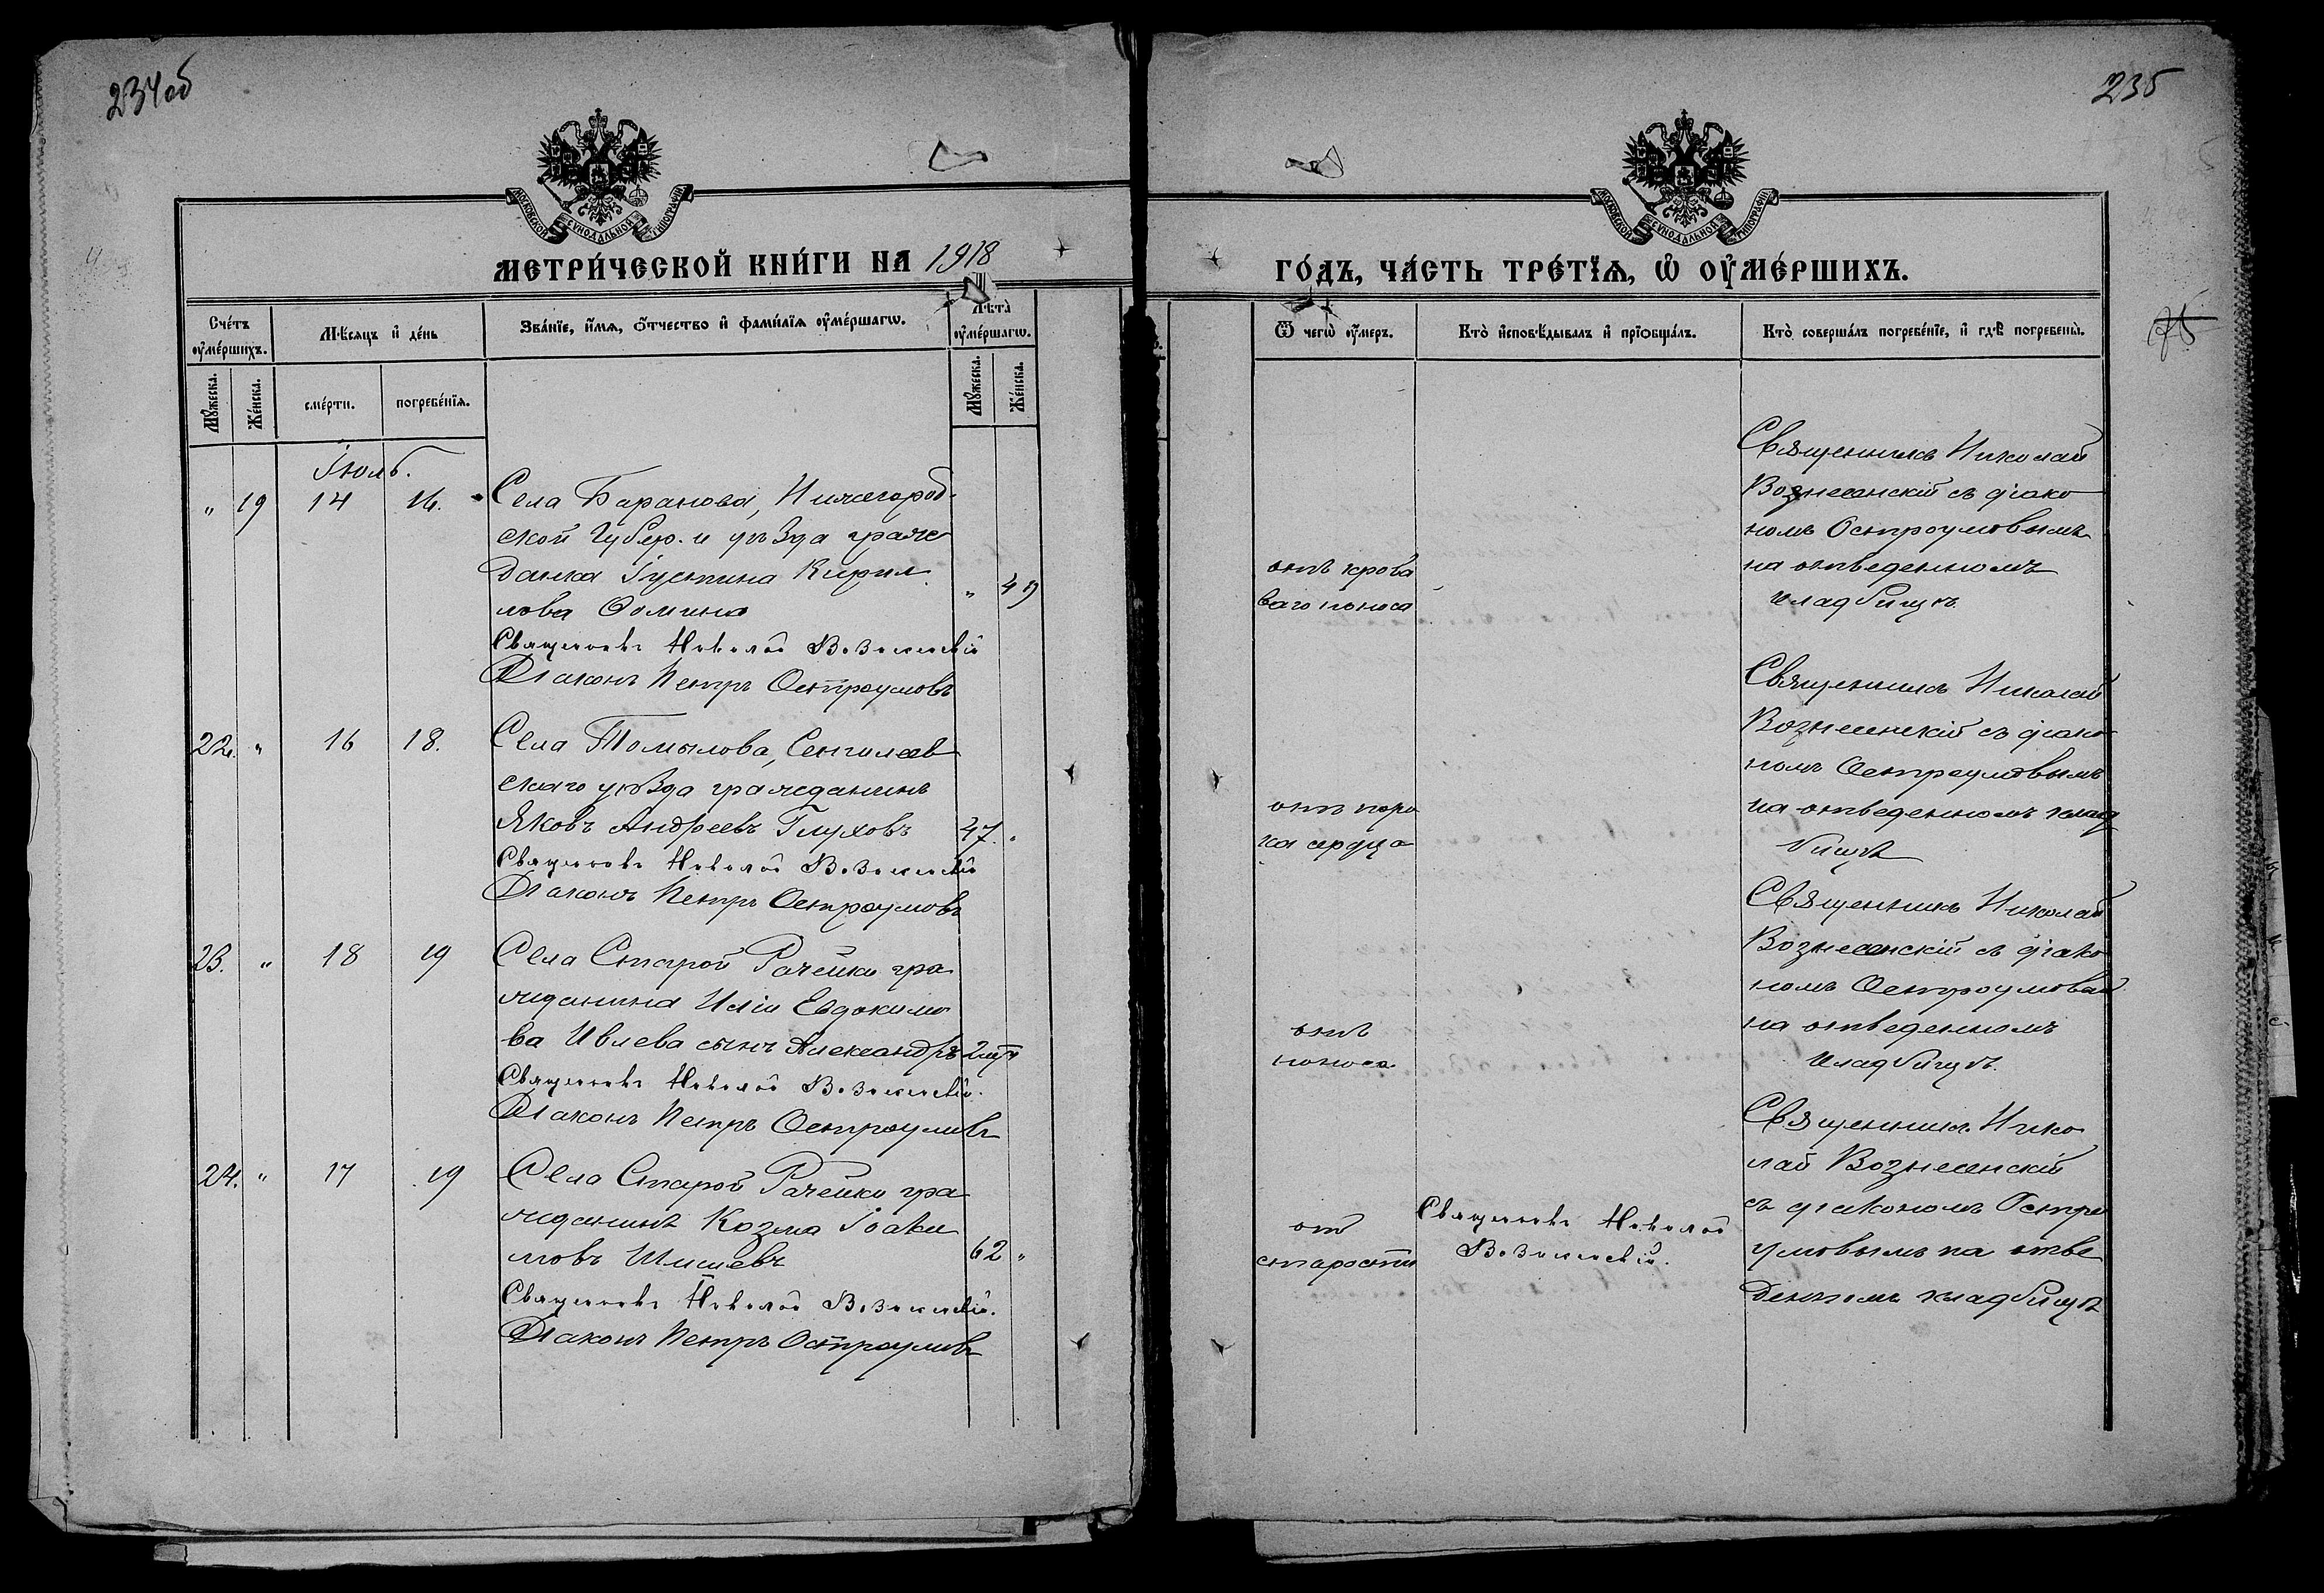 234об
МОСКОВСКОЙ СѴНОДАЛЬНОЙ ТИПОГРАФІИ
МЕТРИ́ЧЕСКОЙ КНИ́ГИ НА 1918
Сче́тъ оу҆ме́ршихъ.
Мѣ́сяцъ и҆ де́нь
Зва́нїе, и҆́мѧ, ѻ҆́тчество и҆ фами́лїѧ оу҆ме́ршагѡ.
Лѣ́та оу҆ме́ршагѡ.
Мꙋ́жеска.
Же́нска.
сме́рти.
погребе́нїѧ.
Мꙋ́жеска.
Же́нска.
Іюль.
" 19 14 16.
Села Баранова, Нижегород-
ской Губер. и уѣзда граж-
данка Іустина Кирил
лова Фомина
" 49
Священникъ Николай Вознесенскій
Діаконъ Петръ Остроумовъ
22. " 16 18.
Села Томылова, Сенгилеев
скаго уѣзда гражданинъ
Яковъ Андреевъ Глуховъ
47. "
Священникъ Николай Вознесенскій
Діаконъ Петръ Остроумовъ
23. " 18 19
Села Старой Рачейки гра
жданина Иліи Евдокимо
ва Ивлева сынъ Александръ
Священникъ Николай Вознесенскій.
Діаконъ Петръ Остроумовъ
24. " 17 19
Села Старой Рачейки гра
жданинъ Козма Іоаки
мовъ
62 "
Священникъ Николай Вознесенскій.
Діаконъ Петръ Остроумовъ
235
МОСКОВСКОЙ СѴНОДАЛЬНОЙ ТИПОГРАФІИ
ГО́ДЪ, ЧА́СТЬ ТРЕ́ТЇѦ, Ѡ҆ ОУ҆МЕ́РШИХЪ.
Ѿ чегѡ̀ оу҆́меръ.
Кто̀ и҆сповѣ́дывалъ и҆ прїѻбща́лъ.
Кто̀ соверша́лъ погребе́нїе, и҆ гдѣ̀ погребены̀.
отъ крова
ваго поноса
Священникъ Николай
Вознесенскій съ діако
номъ Остроумовымъ
на отведенномъ
кладбищѣ.
отъ поро
ка сердца
Священникъ Николай
Вознесенскій съ діако
номъ Остроумовымъ
на отведенномъ клад
бищѣ
отъ
поноса
Священникъ Николай
Вознесенскій съ діако
номъ Остроумовым
на отведенномъ
кладбищѣ.
от
старости
Священникъ Николай
Вознесенскій.
Священникъ Нико
лай Вознесенскій
съ діакономъ Остро
умовымъ на отве
денномъ кладбищѣ